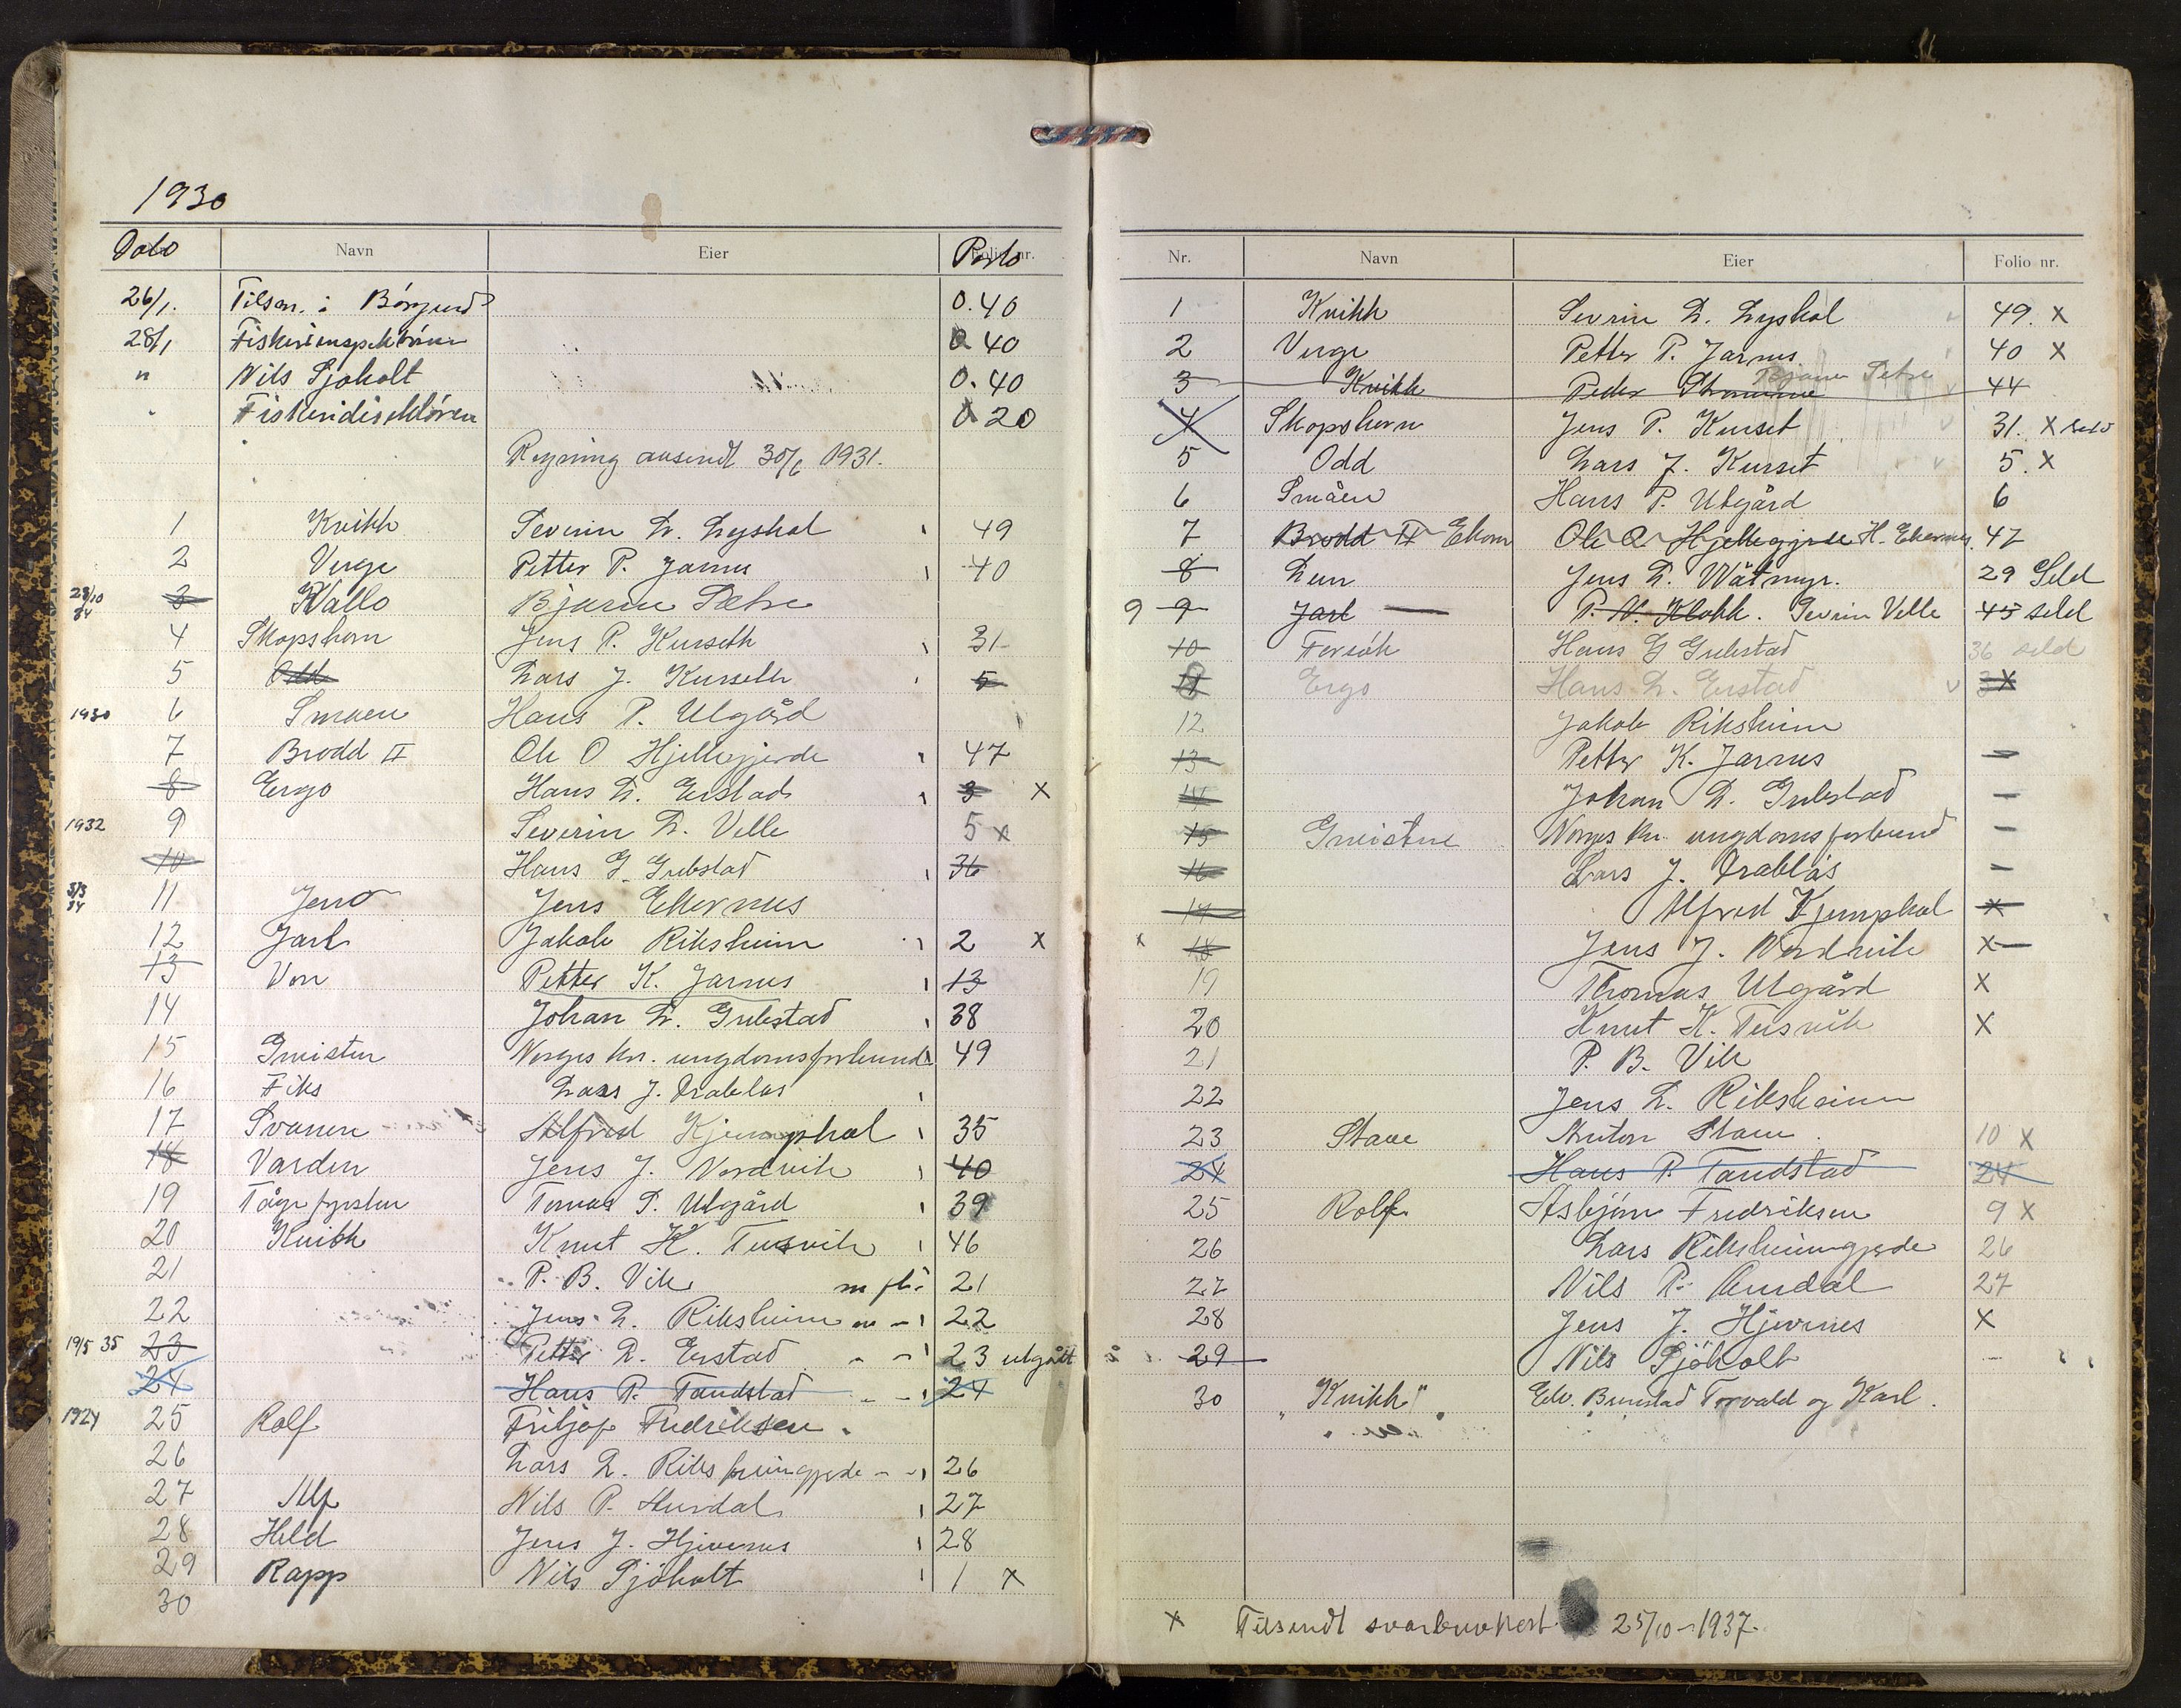 1930
Dato Navn Eier Porto Folio nr.
26/1. Tilsyn. i Borgund 0.40
28/1 Fiskeriinspektøren 0 40
" Nils Sjøholt 0.40
" Fiskeridirektøren 0 20
Regning avsendt 30/6 1931.
1 Kvikk Severin L. Lyshol 49
2 Verge Petter P. Jarnes 40
23/10 34 3 Kallo Bjarne Sætre
4 Skopshorn Jens P. Kurseth 31
5 Odd Lars J. Kurseth 5
1930 6 Småen Hans P. Utgård
7 Brodd II Ole O Hjellegjerde 47
8 Ergo Hans L. Erstad 3 x
1932 9 Severin L. Velle 5 x
10 Hans G. Gulestad 36
3/3 34 11 Jenø Jens Ekornes
12 Jarl Jakob Riksheim 2 x
13 Von Petter K. Jarnes 13
14 Johan L. Gulestad 38
15 Gneisten Norges kr. ungdomsforbund 49
16 Fiks Lars J. Drabløs
17 Svanen Alfred Kjemphol 35
18 Varden Jens J. Nordvik 40
19 Tågefyrsten Tomas P. Utgård 39
20 Kvikk Knut K. Tusvik 46
21 P. B. Vik m fl. 21
22 Jens L. Riksheim m - 22
19/5 35 23 Petter L. Erstad - - 23 utgått
24 Hans P. Tandstad - - 24
1924 25 Rolf Fritjof Fredriksen
26 Lars L. Riksheimgjerde - - 26
27 Alf Nils P. Aursdal 27
28 Held Jens J. Hjevenes 28
29 Rapp Nils Sjøholt 1 x
30
Nr. Navn Eier Folio nr.
1 Kvikk Sevrin L. Lyshol 49. x
2 Verge Petter P. Jarnes 40 x
Bjarne Sætre
3 Kvikk Peder Stremme 44
4 Skopshorn Jens P. Kurset 31. x seld
5 Odd Lars J. Kurset 5. x
6 Småen Hans P. Utgård 6
7 Brodd II Ekorn Ole O. Hjellegjerde H. Ekornes. 47
8 Lun Jens L. Våtmyr. 29 Seld
9 9 Jarl P. N. Klokk. Sevrin Velle 45 seld
10 Forsøk Hans G Gulestad 36 seld
11 Ergo Hans L. Erstad 3 x
12 Jakob Riksheim
13 Petter K. Jarnes -
14 Johan L. Gulestad -
15 Gneistne Norges kr. ungdomsforbund -
16 Lars J. Drabløs -
17 Alfred Kjemphol x
x 18 Jens J. Nordvik x
19 Thomas Utgård x
20 Knut K. Tusvik x
21 P. B. Vik
22 Jens L. Riksheim
23 Stave Anton Stave. 10 x
24 Hans P. Tandstad 24
25 Rolf Asbjørn Fredriksen 9 x
26 Lars Riksheimgjerde 26
27 Nils P. Aursdal 27
28 Jens J. Hjevenes x
29 Nils Sjøholt -
30 "Kvikk" Edv. Brunstad Torvald og Karl.
x Tilsendt svarbrevkort 25/10-1937.